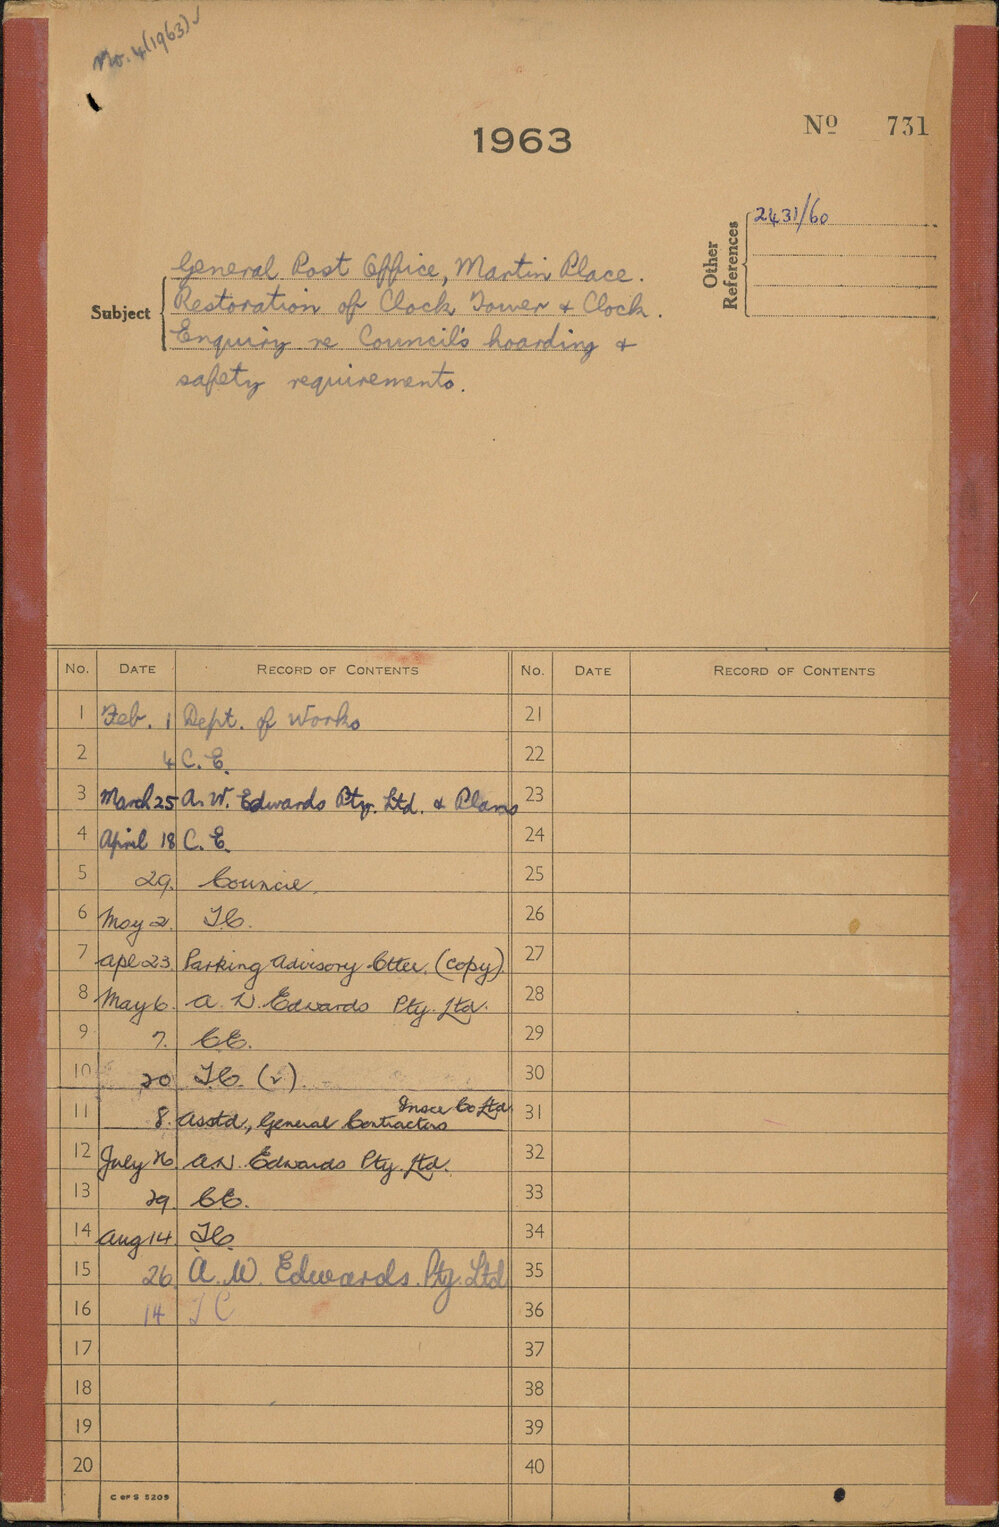 No. 4 (1963) ✓
1963
Nº 731
Other References
2431/60
Subject
General Post Office, Martin Place.
Restoration of Clock Tower & Clock.
Enquiry re Council's hoarding &
safety requirements.
No. DATE RECORD OF CONTENTS No. DATE RECORD OF CONTENTS
1 Feb. 1 Dept. of Works 21
2 4 C.E. 22
3 March 25 A.W. Edwards Pty. Ltd. & Plans 23
4 April 18 C.E. 24
5 29. Council. 25
6 May 2. T.C. 26
7 Apl 23. Parking Advisory Cttee. (copy) 27
8 May 6. A.W. Edwards Pty. Ltd. 28
9 7. CE. 29
10 20 T.C. (2). 30
Insce Co Ltd
11 8. Asstd., General Contractors 31
12 July 26. A.W. Edwards Pty. Ltd. 32
13 29. CE. 33
14 Aug 14. T.C. 34
15 26. A.W. Edwards. Pty. Ltd 35
16 14 TC 36
17 37
18 38
19 39
20 40
C OF S 5209